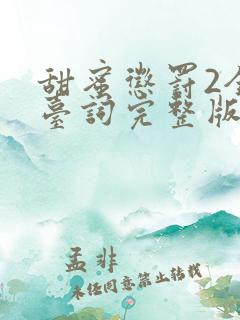 甜蜜懲罰2全
臺詞完整版
孟非
未经同意禁止转载